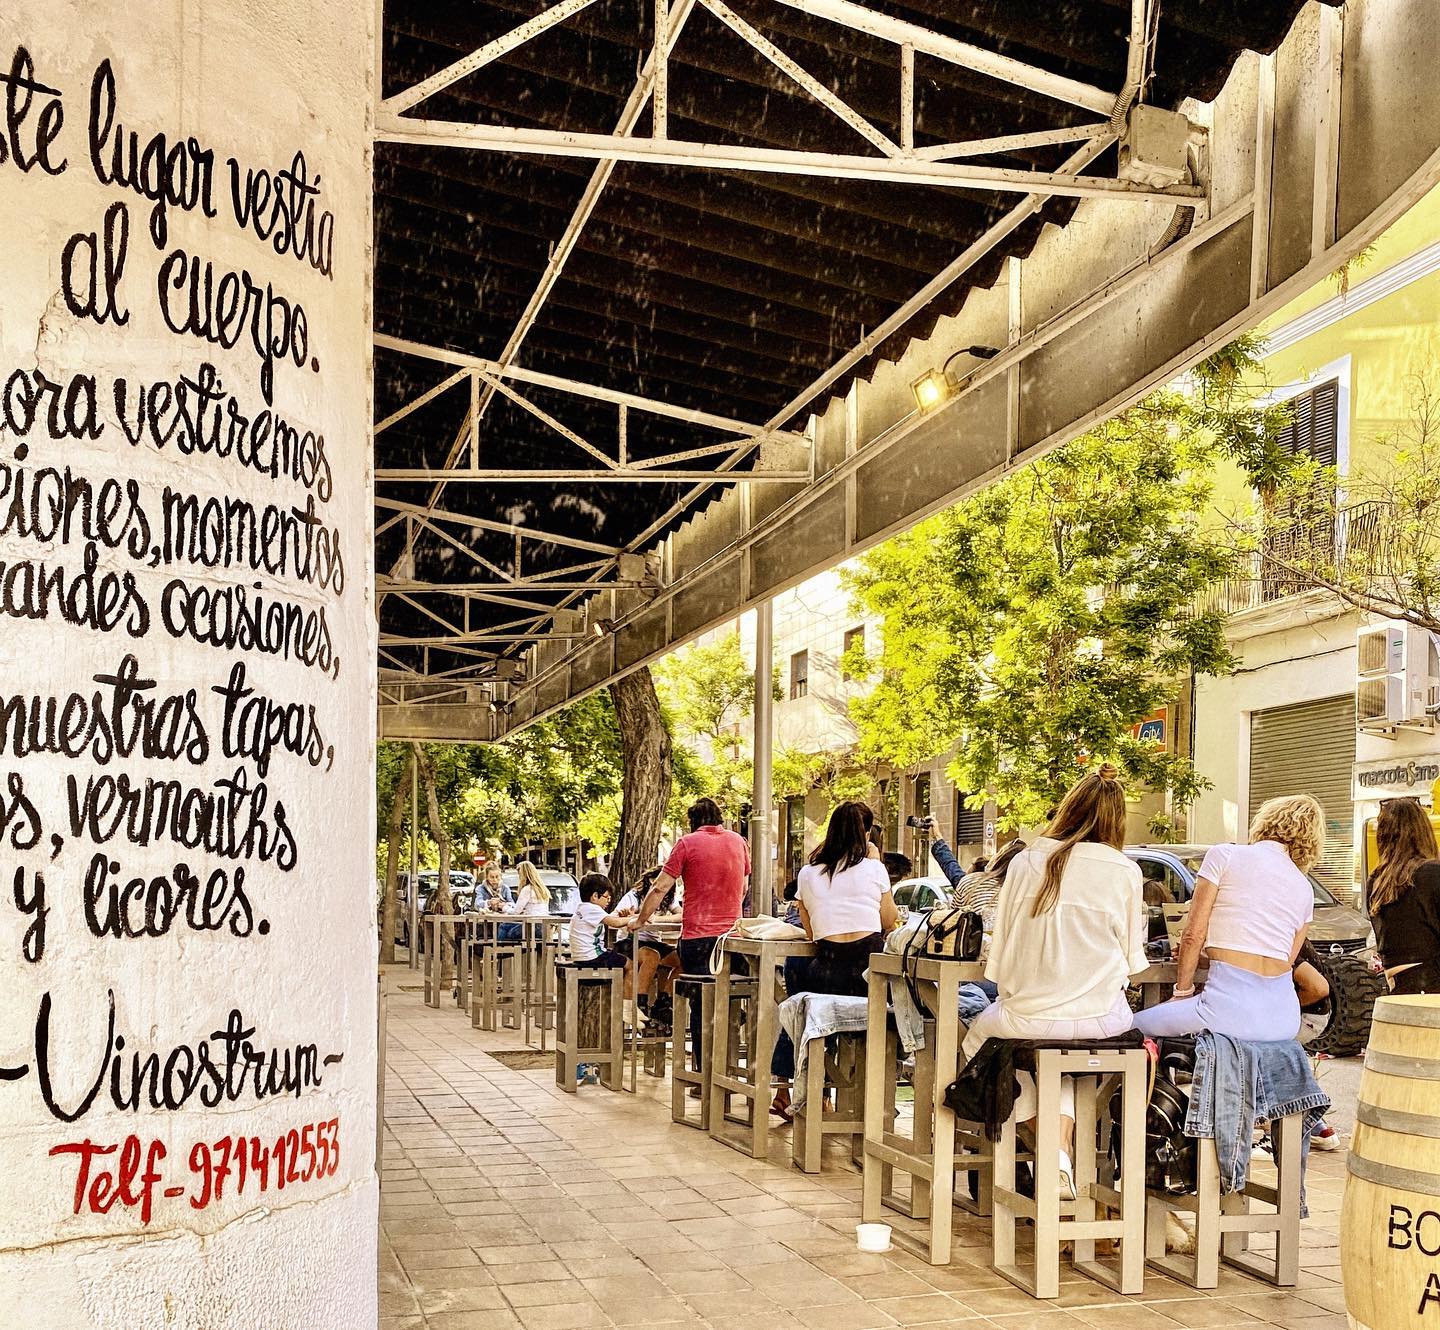 ste lugar vestia
al cuerpo.
ora vestiremos
ciones, momentos
randes ocasiones,
nuestras tapas,
os, vermouths
y licores.
-Vinostrum-
Telf-971412553
mascotaSana
BO